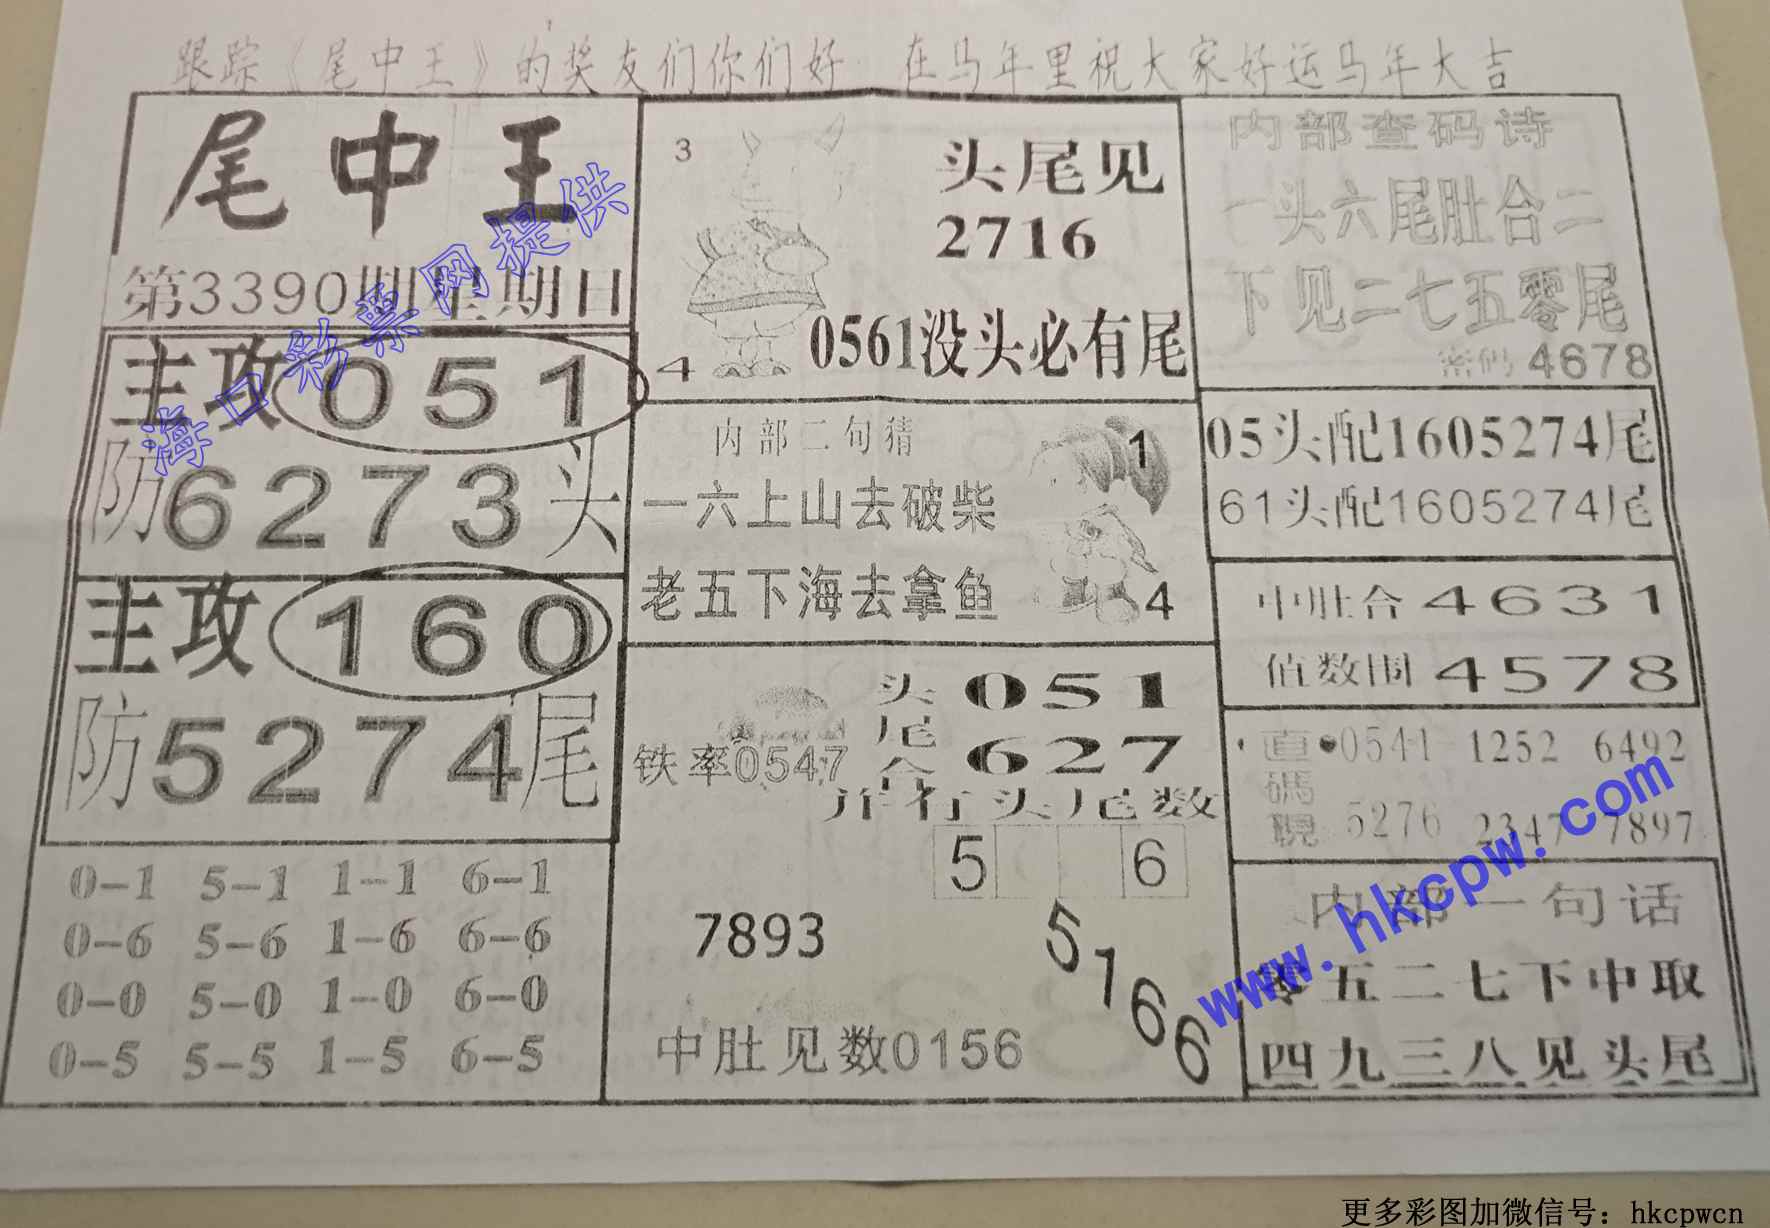 跟踪《尾中王》的奖友们你们好 在马年里祝大家好运马年大吉
尾中王
第3390期星期日
主攻051
防6273头
主攻160
防5274尾
0-1 5-1 1-1 6-1
0-6 5-6 1-6 6-6
0-0 5-0 1-0 6-0
0-5 5-5 1-5 6-5
3
头尾见
2716
4
0561没头必有尾
内部二句猜
1
一六上山去破柴
老五下海去拿鱼
4
铁率0547
头尾合
051
627
并行头尾数
5 6
7893
5166
中肚见数0156
内部查码诗
一头六尾肚合二
下见二七五零尾
密码4678
05头配1605274尾
61头配1605274尾
中肚合4631
值数围4578
直碼
0541 1252 6492
5276 2347 7897
内部一句话
零五二七下中取
四九三八见头尾
海口彩票网提供
www.hkcpw.com
更多彩图加微信号：hkcpwcn